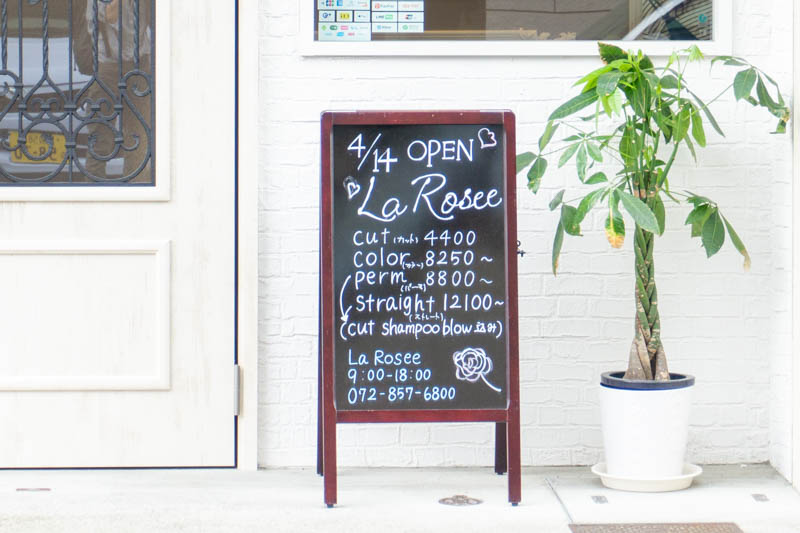 4/14 OPEN
La Rosee
cut (カット) 4400
color (カラー) 8250~
perm (パーマ) 8800~
straight (ストレート) 12100~
(cut shampoo blow 込み)
La Rosee
9:00-18:00
072-857-6800